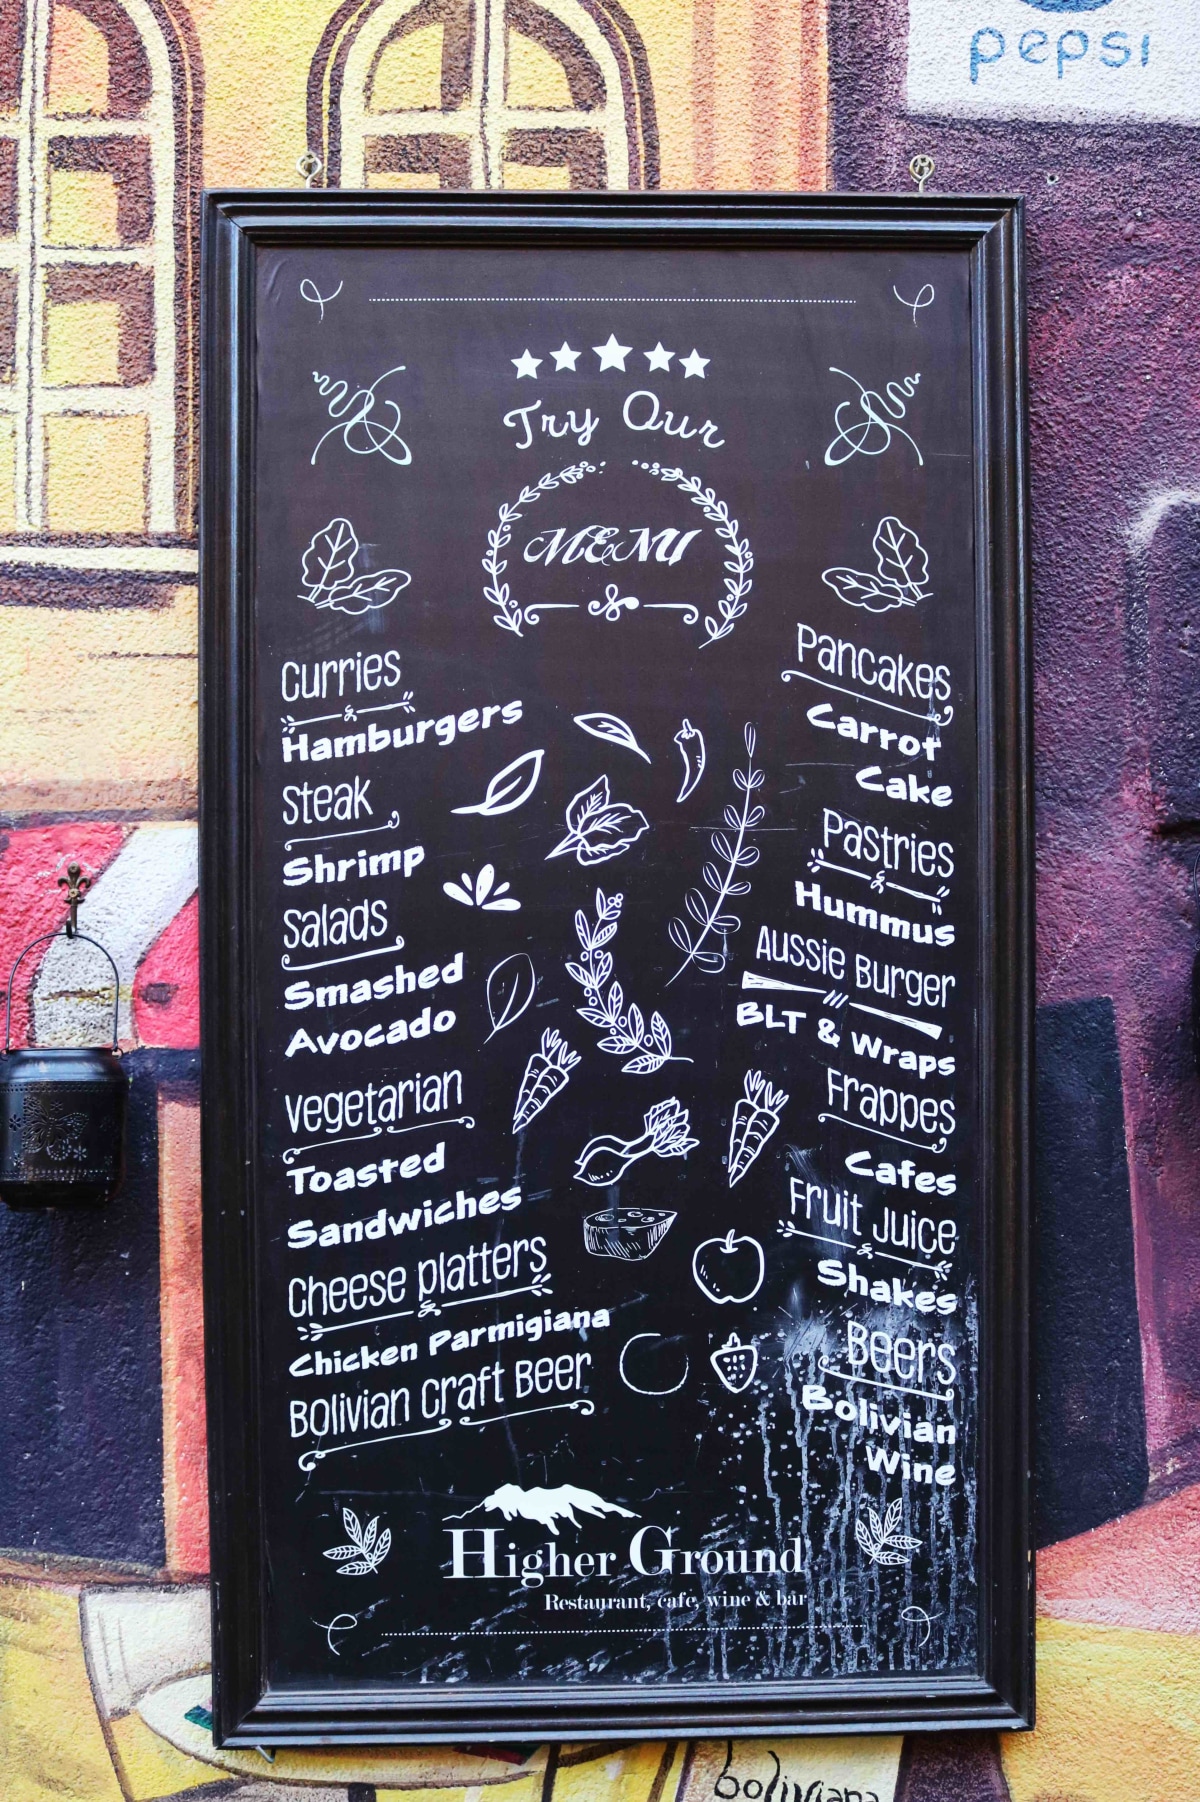 pepsi
Try Our
MENU
Curries
Hamburgers
Steak
Shrimp
Salads
Smashed
Avocado
Vegetarian
Toasted
Sandwiches
Cheese platters
Chicken Parmigiana
Bolivian Craft Beer
Pancakes
Carrot
Cake
Pastries
Hummus
Aussie Burger
BLT & Wraps
Frappes
Cafes
Fruit Juice
Shakes
Beers
Bolivian
Wine
Higher Ground
Restaurant, cafe, wine & bar
boliviana